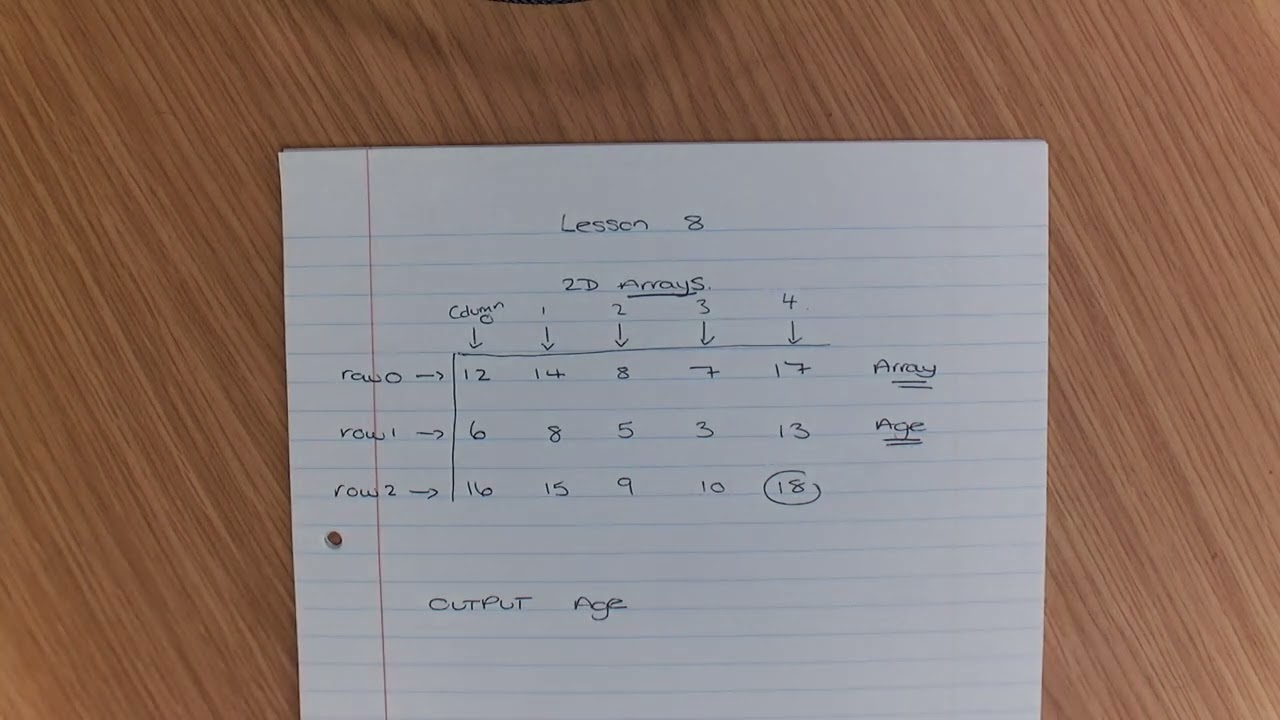 Lesson 8
2D Arrays.
Column 0 1 2 3 4
row 0 → 12 14 8 7 17 Array
row 1 → 6 8 5 3 13 Age
row 2 → 16 15 9 10 18
OUTPUT Age